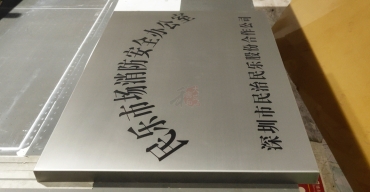 民乐市场消防安全办公室
深圳市民治民乐股份合作公司